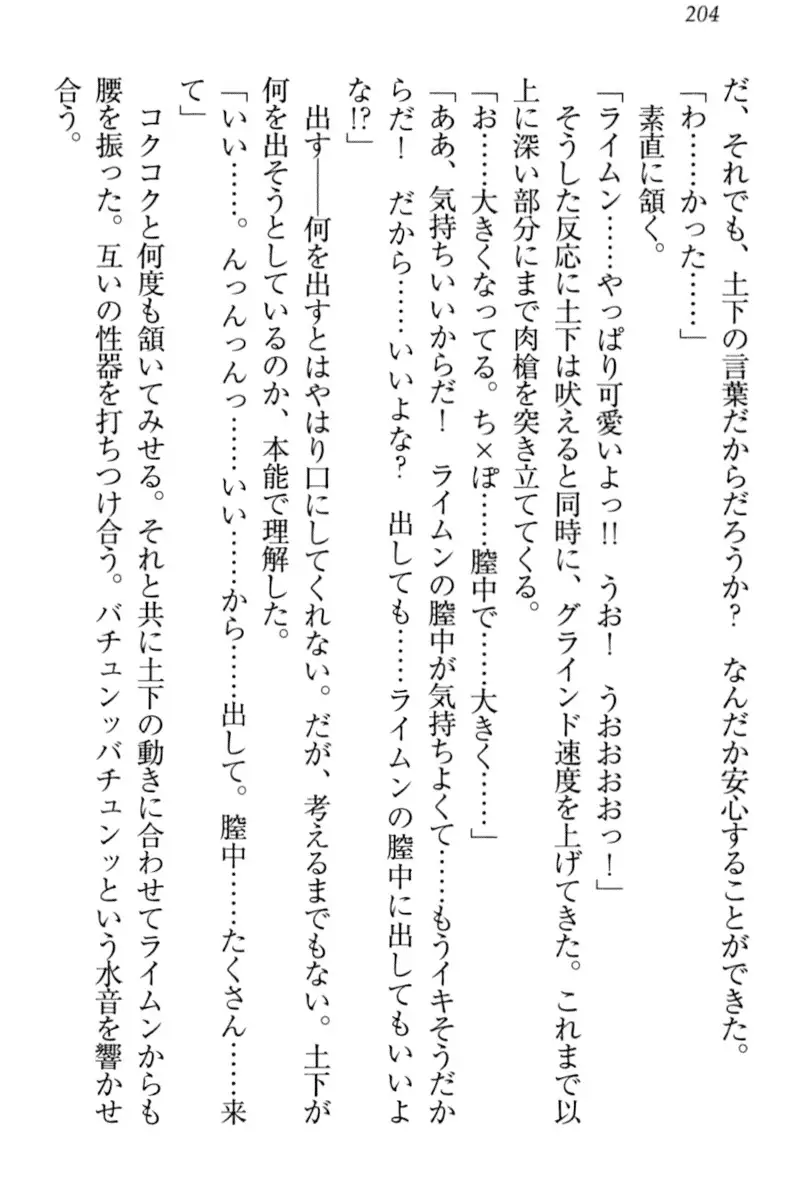 204
だ、それでも、土下の言葉だからだろうか?　なんだか安心することができた。
「わ……かった……」
素直に頷く。
「ライムン……やっぱり可愛いよっ!!　うお!　うおおおおっ!」
そうした反応に土下は吠えると同時に、グラインド速度を上げてきた。これまで以
上に深い部分にまで肉槍を突き立ててくる。
「お……大きくなってる。ち×ぽ……膣中で……大きく……」
「ああ、気持ちいいからだ!　ライムンの膣中が気持ちよくて……もうイキそうだか
らだ!　だから……いいよな?　出しても……ライムンの膣中に出してもいいよ
な!?」
出す――何を出すとはやはり口にしてくれない。だが、考えるまでもない。土下が
何を出そうとしているのか、本能で理解した。
「いい……。んっんっんっ……いい……から……出して。膣中……たくさん……来
て」
コクコクと何度も頷いてみせる。それと共に土下の動きに合わせてライムンからも
腰を振った。互いの性器を打ちつけ合う。バチュンッバチュンッという水音を響かせ
合う。